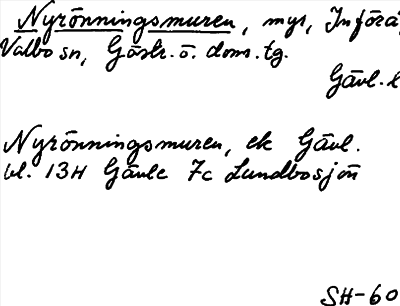 Nyrönningsmuren, myr, Införå,
Valbo sn, Gästr. ö. doms. tg.
Gävl. l
Nyrönningsmuren, ek Gävl.
bl. 13H Gävle 7c Lundbosjön
SH-60